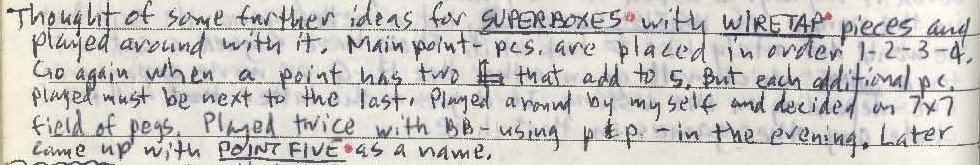 Thought of some further ideas for SUPERBOXES with WIRETAP pieces and
played around with it. Main point - pcs. are placed in order 1-2-3-4.
Go again when a point has two # that add to 5, But each additional pc.
played must be next to the last. Played around by myself and decided on 7x7
field of pegs. Played twice with BB - using p & p - in the evening. Later
came up with POINT FIVE as a name.